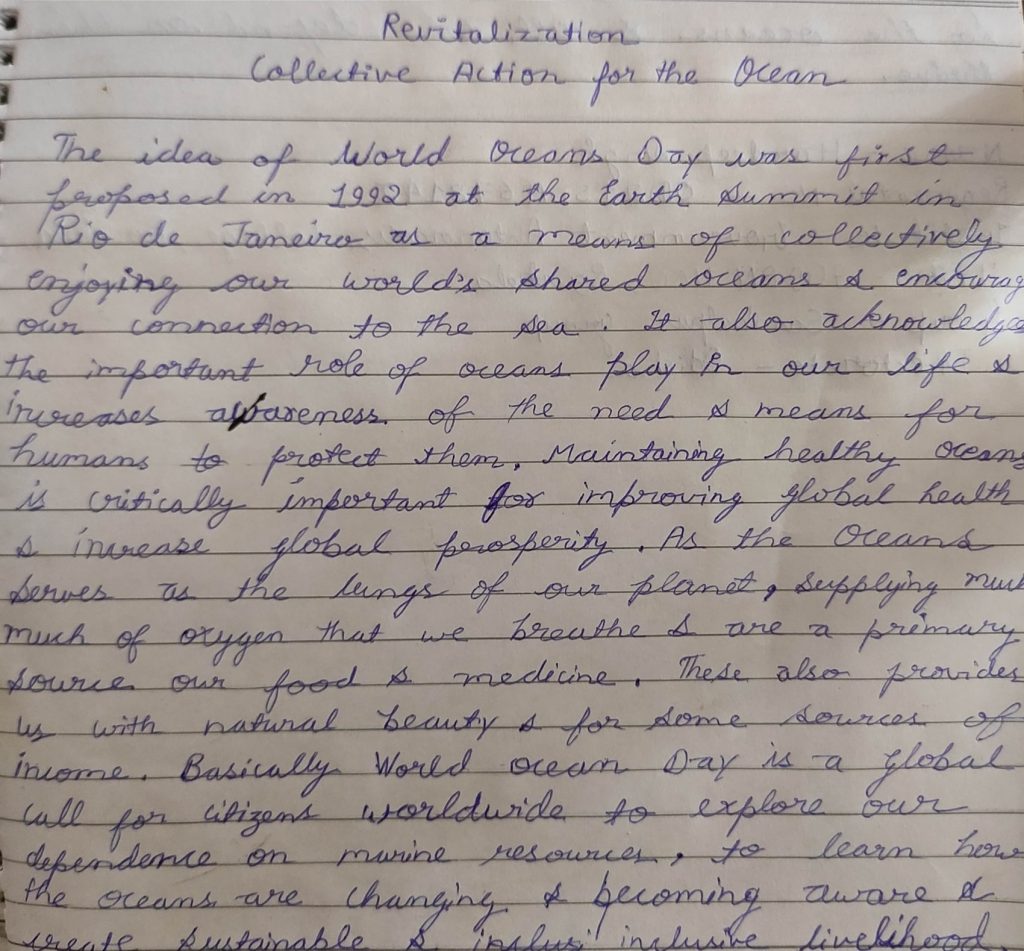 Revitalization
Collective Action for the Ocean
The idea of World Oceans Day was first
proposed in 1992 at the Earth Summit in
Rio de Janeiro as a means of collectively
enjoying our world's shared oceans & encourag
our connection to the sea. It also acknowledge
the important role of oceans play in our life &
increases awareness of the need & means for
humans to protect them. Maintaining healthy oceans
is critically important for improving global health
& increase global prosperity. As the Oceans
serves as the lungs of our planet, supplying much
much of oxygen that we breathe & are a primary
source our food & medicine. These also provides
us with natural beauty & for some sources of
income. Basically World ocean Day is a global
call for citizens worldwide to explore our
dependence on marine resources, to learn how
the oceans are changing & becoming aware &
create sustainable & inclusi inclusive livelihood